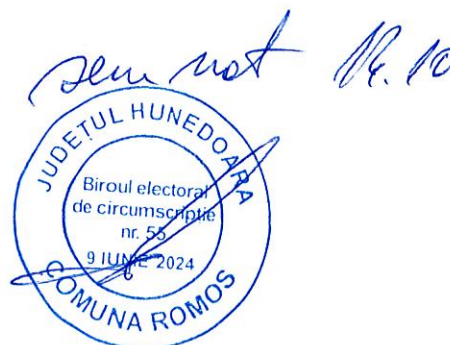 JUDEȚUL HUNEDOARA
Biroul electoral
de circumscripție
nr. 55
9 IUNIE 2024
COMUNA ROMOS